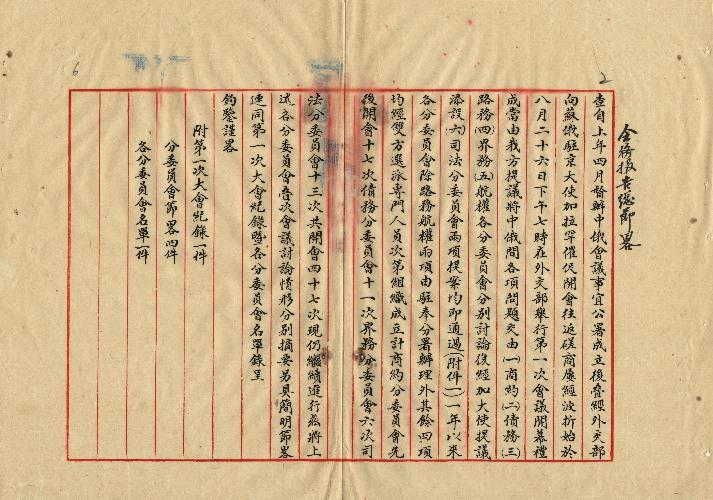 會務報告總節畧
查自上年四月督辦中俄會議事宜公署成立後疊經外交部
向蘇俄駐京大使加拉罕催促開會往返磋商屢經波折始於
八月二十六日下午七時在外交部舉行第一次會議開幕禮
成當由我方提議將中俄間各項問題交由(一)商約(二)債務(三)
路務(四)界務(五)航權各分委員會分別討論後經加大使提議
添設(六)司法分委員會兩項提案均即通過(附件一)一年以來
各分委員會除路務航權兩項由駐奉分署辦理外其餘四項
均經雙方選派專門人員次第組織成立計商約分委員會先
後開會十七次債務分委員會十一次界務分委員會六次司
法分委員會十三次共開會四十七次現仍繼續進行茲將上
述各分委員會叠次會議討論情形分別摘要另具簡明節畧
連同第一次大會紀錄暨各分委員會名單錄呈
鈞鑒謹畧
附第一次大會紀錄一件
分委員會節畧四件
各分委員會名單一件
2
6